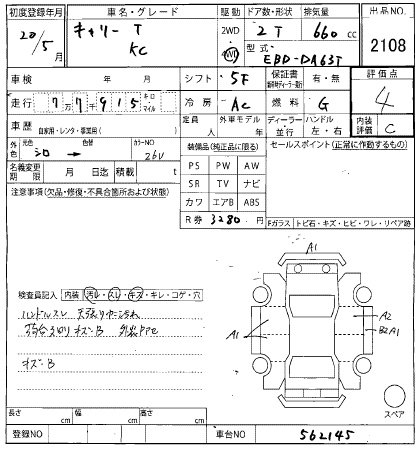 初度登録年月 車名・グレード 駆動 ドア数・形状 排気量 出品NO.
20/5月 キャリー T KC 2WD 4WD 2 T 660 cc 2108
型式 EBD-DA63T
車検 年 月 シフト 5F 保証書 有・無 評価点
走行 77千915 キロ・マイル 冷房 AC 燃料 G 4
車歴 自家用・レンタ・事業用( ) 定員 人 外車モデル 年 ディーラー 並行 ハンドル 左・右 内装評価 C
外色 元色 シロ → 色替 カラーNO 26U 装備品(純正品に限る) セールスポイント(正常に作動するもの)
名義変更期限 月 日迄 積載 t
PS PW AW
注意事項(欠品・修復・不具合箇所および状態)
SR TV ナビ
カワ エアB ABS
R券 3280 円
Fガラス トビ石・キズ・ヒビ・ワレ・リペア跡
A1
検査員記入 内装 汚レ・スレ・キズ・キレ・コゲ・穴
ハンドルスレ
A1
A2
B2A1
キズ・B
スペア
長さ cm 幅 cm 高さ cm
登録NO 車台NO 562145